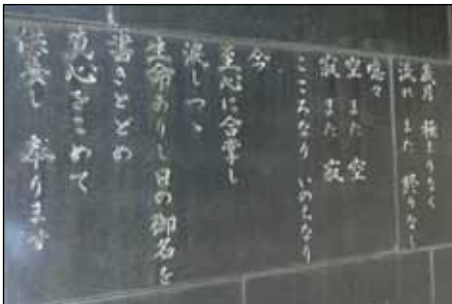 歳月 極まりなく
流れ また 終りなし
空 また 空
寂 また 寂
こころなり いのちなり
今
至心に合掌し
涙しつゝ
生命ありし日の御名を
書きとどめ
真心をこめて
供養し 奉ります